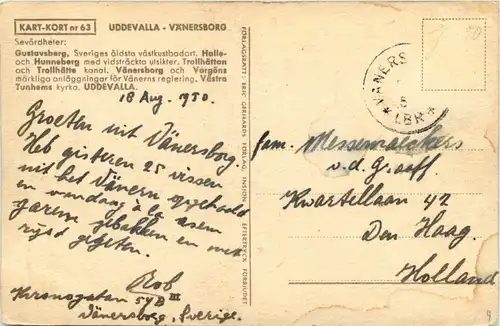 KART-KORT nr 63 UDDEVALLA - VÄNERSBORG
Sevärdheter:
Gustavsberg, Sveriges äldsta västkustbadort. Halle-
och Hunneberg med vidsträckta utsikter. Trollhättan
och Trollhätte kanal. Vänersborg och Vargöns
märkliga anläggningar för Vänerns reglering. Västra
Tunhems kyrka. UDDEVALLA.
18 Aug. 1950.
Groeten uit Vänersborg.
Heb gisteren 25 vissen
uit het Vänern opgehaald
en vandaag à la
garem gebakken en met
rijst gegeten.
Rob
Kronogatan 54B III
Vänersborg, Sverige.
FÖRLAGSRÄTT: ERIC GERHARDS FÖRLAG, EFTERTRYCK FÖRBJUDET
VÄNERS
LBR
fam. Messemaeckers
v.d. Graaff.
Kwartellaan 42
Den Haag.
Holland